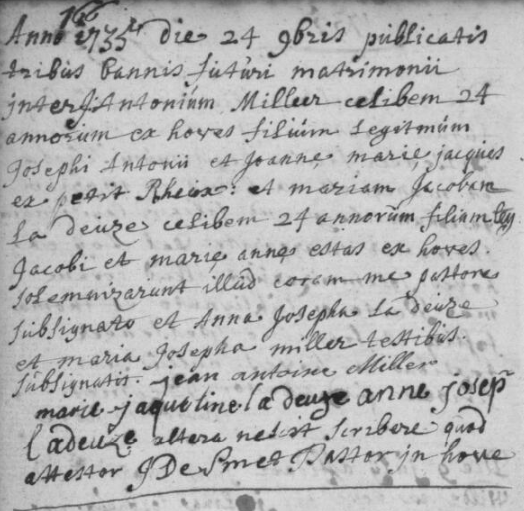 16
Anno 1735 die 24 9bris publicatis
tribus bannis futuri matrimonii
inter Antonium Miller celibem 24
annorum ex hoves filium legitmum
Josephi Antonii et Joanne marie jacques
ex petit Rheux: et mariam Jacobam
La deuze celibem 24 annorum filiam leg
Jacobi et marie anne estas ex hoves.
solemnizarunt illud coram me pastore
subsignato et Anna Josepha La deuze
et maria Josepha miller testibus
subsignatis. jean antoine Miller
marie jaqueline ladeuze anne josep
ladeuze altera nescit scribere quod
attestor J De Smet Pastor in hove